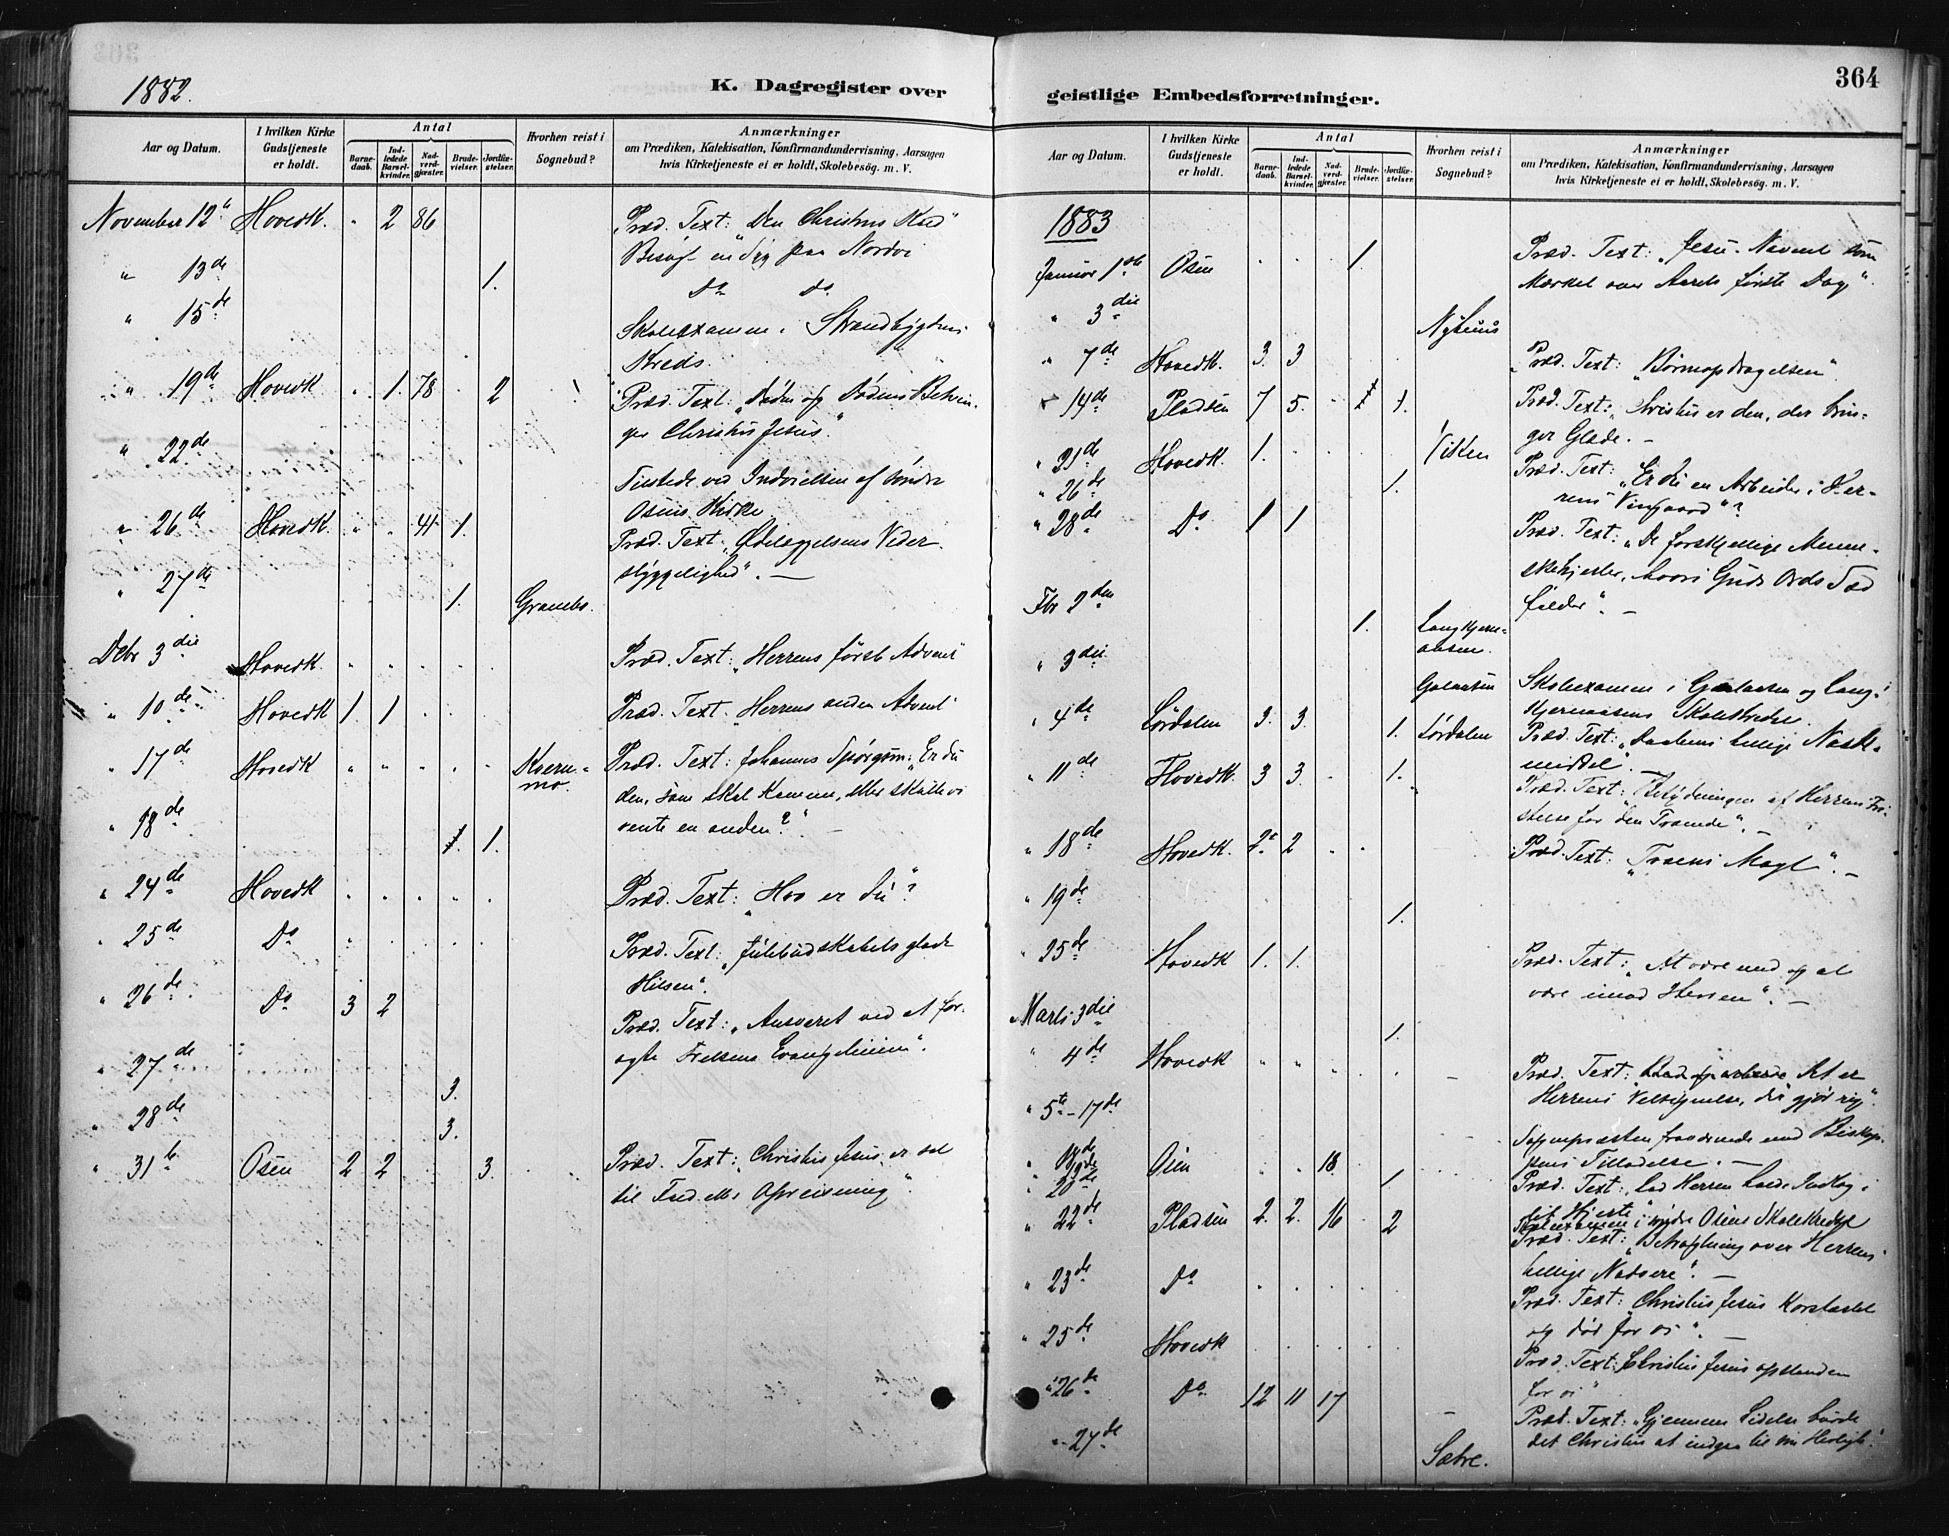 1882.
K. Dagregister over
Aar og Datum.
I hvilken Kirke Gudstjeneste er holdt.
Antal
Barnedaab.
Indledede Barselkvinder.
Nadverdgjæster.
Brudevielser.
Jordfæstelser.
Hvorhen reist i Sognebud?
Anmærkninger
om Prædiken, Katekisation, Konfirmandundervisning, Aarsagen
hvis Kirketjeneste ei er holdt, Skolebesøg. m. V.
November 12te Hovedk. " 2 86 Præd. Text: "Den Christnes
paa Nordvi
" 13de 1. Do Do
" 15de Skoleexamen i Strandbygdens
Kreds.
" 19de Hovedk " 1. 78 2 Præd. Text: "Døden og Dødens Betvin-
ger Christus Jesus".
" 22de Tilstede ved Indvielsen af søndre
Osens Kirke
" 26de Hovedk. " " 41 1. Præd. Text: "Ødelæggelsens Veder-
styggelighed".
" 27de 1. Grambo.
Debr 3die Hovedk. Præd. Text: "Herrens første Advent"
" 10de Hovedk 1. 1 Præd. Text. Herrens anden Advent
" 17de Hovedk Kvern-
mo. Præd. Text: Johannes Spørgsm: "Er du
den, som skal komme, eller skulle vi
vente en anden?"
" 18de 1. 1.
" 24de Hovedk Præd. Text: "Hvo er du"?
" 25de Do Præd. Text: "Julebudskabets glade
Hilsen".
" 26de Do 3 2 Præd. Text: "Ansvaret ved at for-
agte Frelsens Evangelium".
" 27de 3.
" 28de 3.
" 31te Osen 2 2 3. Præd. Text: "Christus Jesus er sat
til Fald eller Opreisning".
364
geistlige Embedsforretninger.
Aar og Datum.
I hvilken Kirke Gudstjeneste er holdt.
Antal
Barnedaab.
Indledede Barselkvinder.
Nadverdgjæster.
Brudevielser.
Jordfæstelser.
Hvorhen reist i Sognebud?
Anmærkninger
om Prædiken, Katekisation, Konfirmandundervisning, Aarsagen
hvis Kirketjeneste ei er holdt, Skolebesøg. m. V.
1883
Januar 1ste Osen 1. Præd. Text: "Jesu Navnet som
Mærket over Aarets første Dag".
" 3die Nyhuus
" 7de Hovedk. 3. 3 Præd. Text: "Børneopdragelsen".
" 14de Pladsen 7 5. 1 1. Præd. Text: "Christus er den, der brin-
ger Glæde.
" 21de Hovedk. 1. Visten Præd. Text: "Er du en Arbeider i Her-
rens Viingaard"?
" 26de 1.
" 28de Do 1 1 Præd. Text: "De forskjellige Menne-
skehjerter, hvori Guds Ords Sæd
falder".
Fbr 2den 1. Langkjern-
aasen.
" 3die Galaasen Skoleexamen i Galaasen og Lang-
kjernaasens Skolekredse.
" 4de Lørdalen 3. 3. 1. Lørdalen Præd. Text: "Daabens hellige Naade-
middel".
" 11de Hovedk. 3 3. 1. Præd. Text: "Betydningen af Herrens Fri-
stelse for den Troende".
" 18de Hovedk. 2 2 Præd. Text: "Troens Magt".
" 19de 1.
" 25de Hovedk 1. 1. Præd. Text: "At være med og at
være imod Herren".
Marts 3die 1.
" 4de Hovedk Præd. Text: At er
Herrens Velsignelse, der gjør rig".
" 5te-17de Sognepræsten fraværende med Biskop-
pens Tilladelse.
" 18de Osen 18. Præd. Text: "Lad Herren holde Indtog i
dit Hjerte
" 20de 1 Skoleexamen i søndre Osens Skolekreds
" 22de Pladsen 2. 2. 16 2 Præd. Text: "Betragtning over Herrens
hellige Nadvere".
" 23de Do Præd. Text: "Christus Jesus Korsfæstet
og død for os".
" 25de Hovedk Præd. Text: Christus Jesus opstanden
for os"
" 26de Do 12 11 17 Præd. Text: "Gjennem Lidelse burde
det Christus at indgaa til sin Herligh.".
" 27de Sætre.